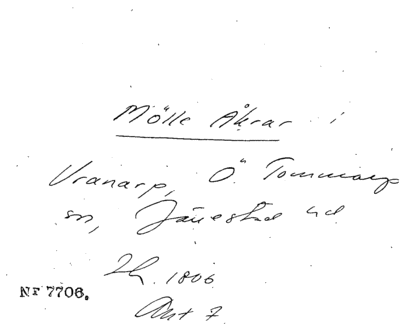 Mölle Åkrar i
Vranarp, Ö. Tommarp
sn, Järrestad hd
Lh. 1806
Akt 7
Nr 7706.